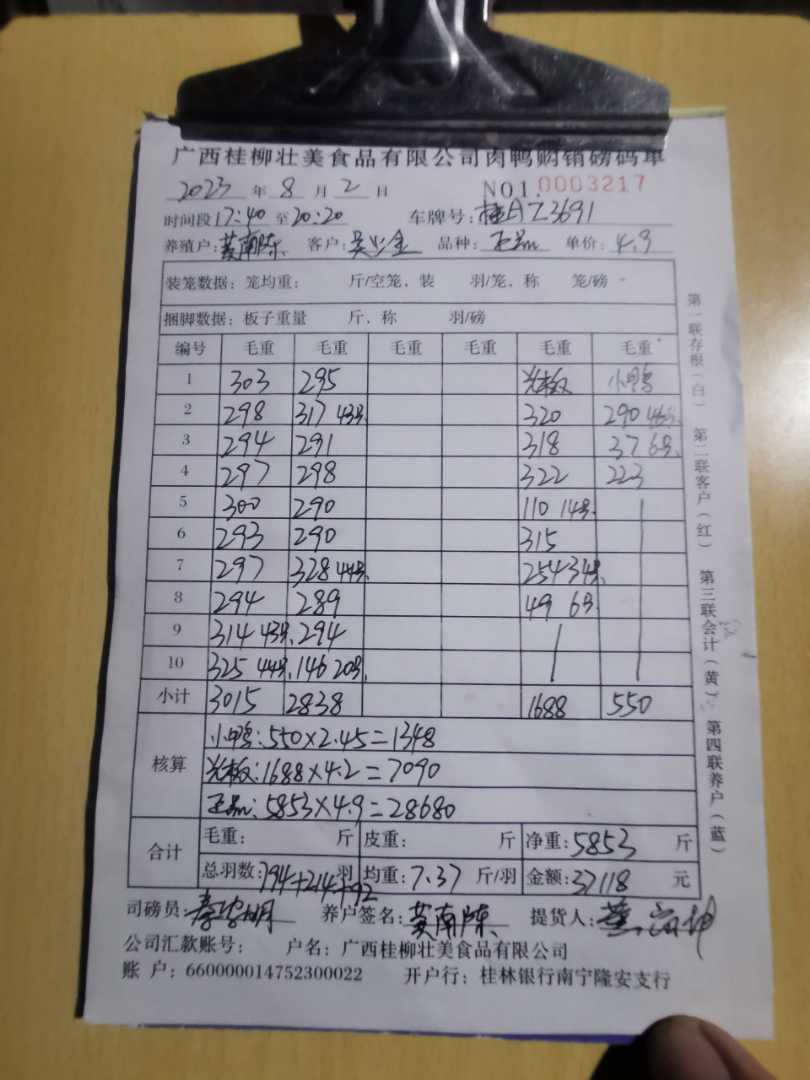 广西桂柳壮美食品有限公司肉鸭购销磅码单
2023 年 8 月 2 日 NO1. 0003217
时间段17:40 至20:20 车牌号: 桂AZ3691
养殖户: 黄南陈 客户: 吴 金 品种: 正品 单价: 4.9
装笼数据: 笼均重: 斤/空笼, 装 羽/笼, 称 笼/磅
捆脚数据: 板子重量 斤, 称 羽/磅
编号 毛重 毛重 毛重 毛重 毛重 毛重
1 303 295 光板 小鸭
2 298 317 43羽 320 290 46羽
3 294 291 318 37 6羽
4 297 298 322 223
5 300 290 110 14羽
6 293 290 315
7 297 328 44羽 254 34羽
8 294 289 49 6羽
9 314 43羽 294
10 325 44羽 146 20羽
小计 3015 2838 1688 550
核算
小鸭: 550×2.45=1348
光板: 1688×4.2=7090
正品: 5853×4.9=28680
合计
毛重: 斤 皮重: 斤 净重: 5853 斤
总羽数: 794+214+92 羽 均重: 7.37 斤/羽 金额: 37118 元
司磅员: 养户签名: 黄南陈 提货人:
公司汇款账号: 户名: 广西桂柳壮美食品有限公司
账 户: 660000014752300022 开户行: 桂林银行南宁隆安支行
第一联存根(白) 第二联客户(红) 第三联会计(黄) 第四联养户(蓝)